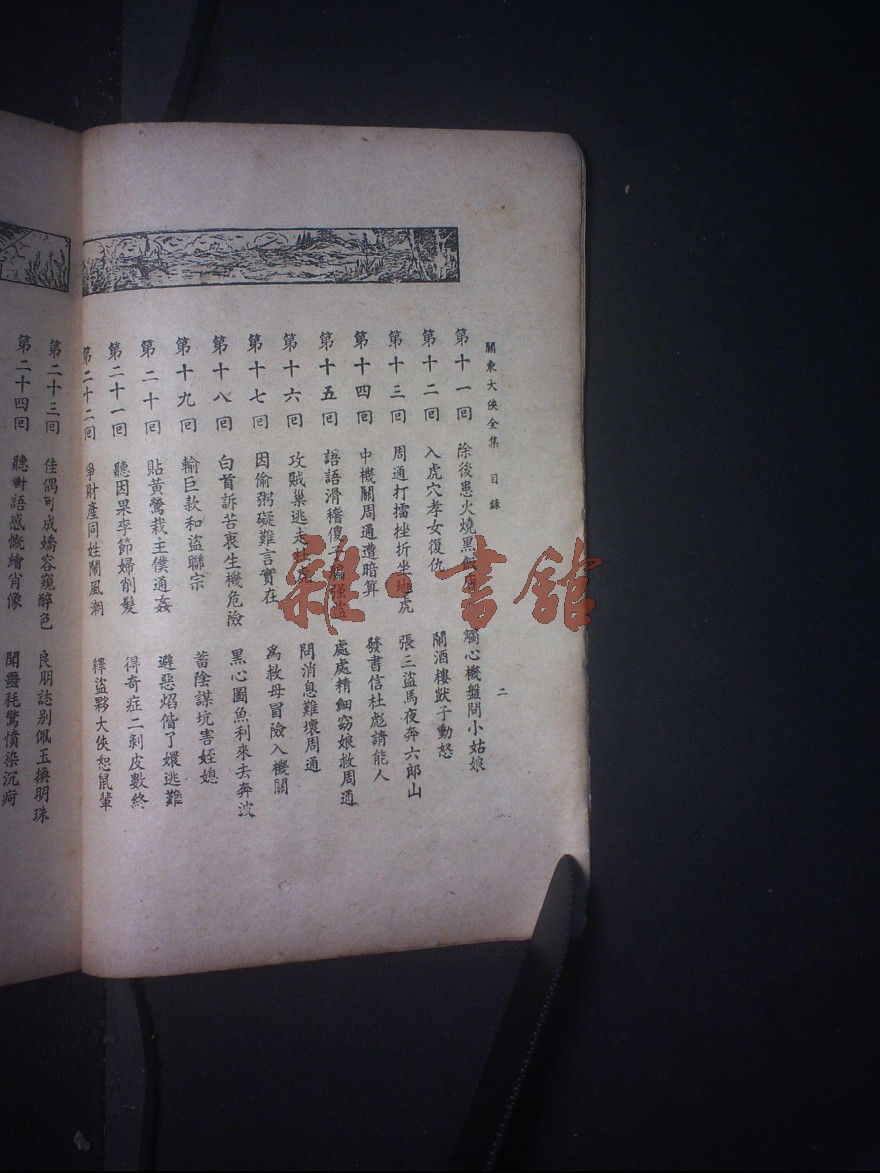 關東大俠全集 目錄 二
第十一回 除後患火燒黑飯店 觸心機盤問小姑娘
第十二回 入虎穴孝女復仇 鬧酒樓獃子動怒
第十三回 周通打擂挫折坐地虎 張三盜馬夜奔六郎山
第十四回 中機關周通遭暗算 發書信杜彪請能人
第十五回 語語滑稽傻子騙强盜 處處精細窈娘救周通
第十六回 攻賊巢逃走杜彪 問消息難壞周通
第十七回 因偷粥礙難言實在 爲救母冒險入機關
第十八回 白首訴苦衷生機危險 黑心圖魚利來去奔波
第十九回 輸巨款和盜聯宗 蓄陰謀坑害姪媳
第二十回 貼黃鶯栽主僕通姦 避惡焰偕了嬛逃難
第二十一回 聽因果李節婦削髮 得奇症二剝皮數終
第二十二回 爭財產同姓鬧風潮 釋盜夥大俠恕鼠輩
第二十三回 佳偶可成嬌容窺醉色 良朋誌别佩玉換明珠
第二十四回 聽對語感慨繪肖像 聞噩耗驚憤染沉疴
雜·書館